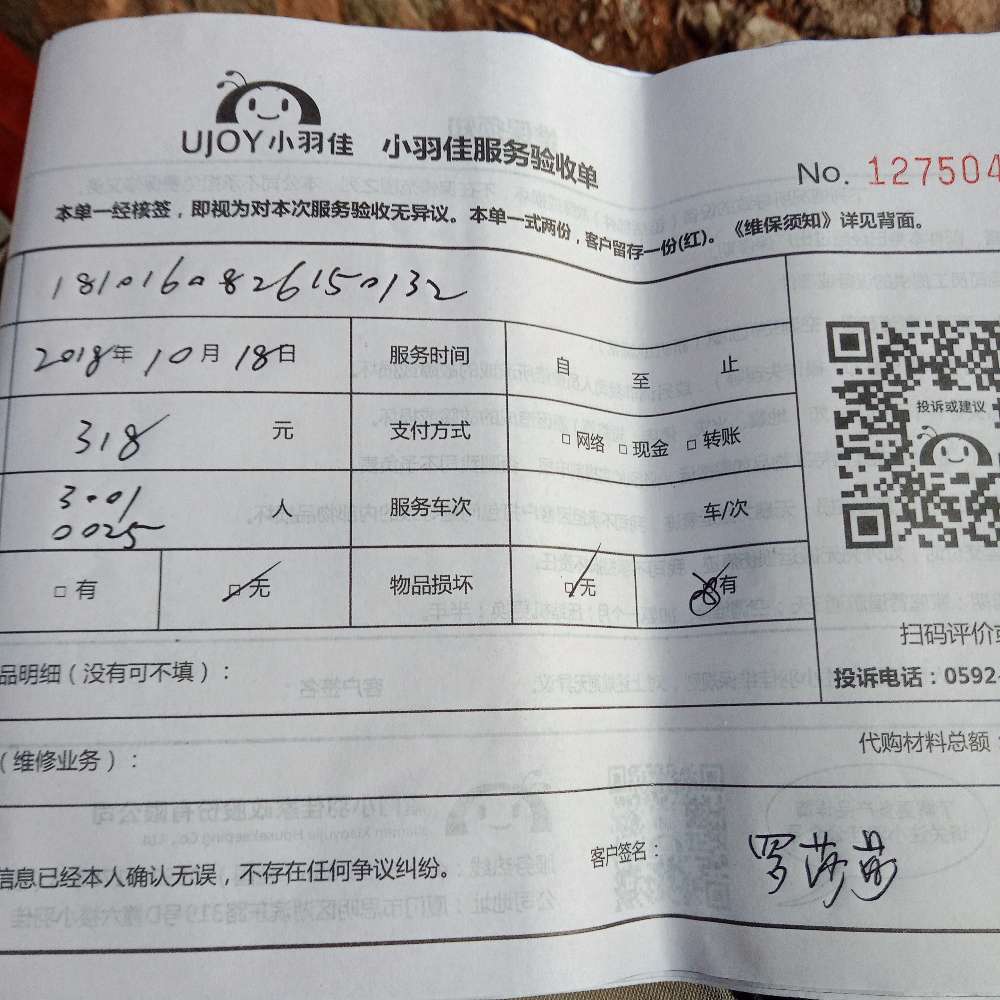 UJOY小羽佳 小羽佳服务验收单
No. 127504
本单一经核签，即视为对本次服务验收无异议。本单一式两份，客户留存一份(红)。《维保须知》详见背面。
1810160826150132
2018年 10月 18日 服务时间 自 至 止
318 元 支付方式 □网络 □现金 □转账
投诉或建议
3001
0025 人 服务车次 车/次
□有 □无 物品损坏 □无 有
扫码评价或
品明细（没有可不填）：
投诉电话：0592-
代购材料总额：
（维修业务）：
信息已经本人确认无误，不存在任何争议纠纷。
客户签名：罗莎